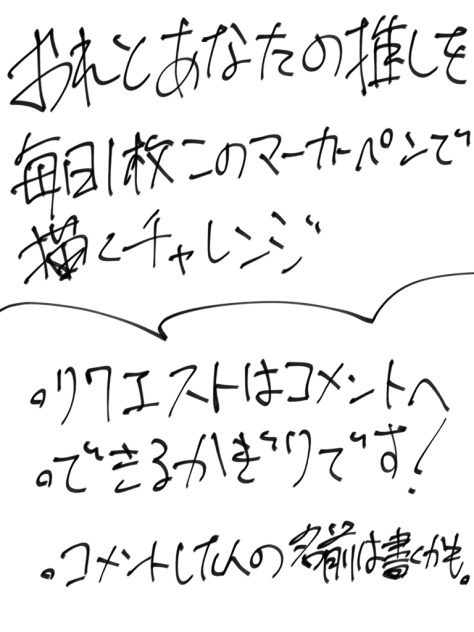 おれとあなたの推しを
毎日1枚このマーカーペンで
描くチャレンジ
。リクエストはコメントへ
。できるかぎりです!
。コメントした人の名前は書くかも。